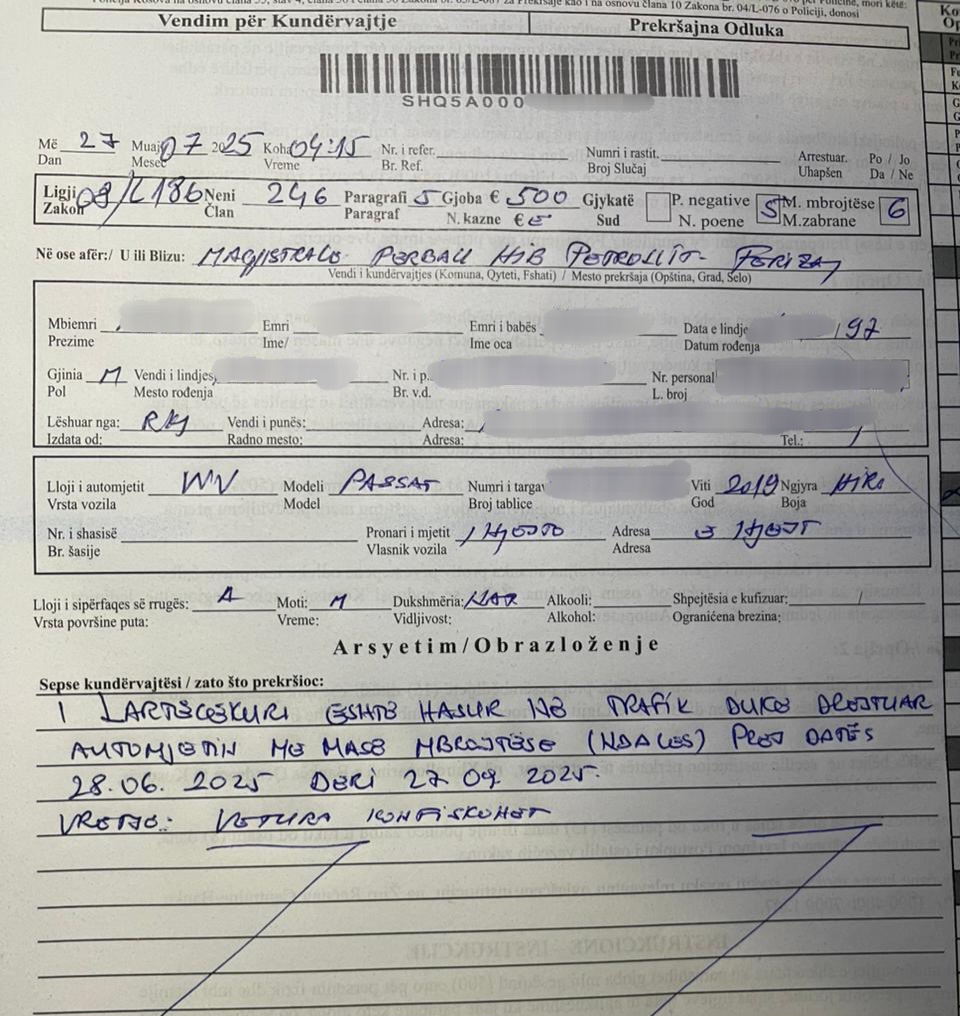 Vendim për Kundërvajtje Prekršajna Odluka
SHQ5A000
Më 27 Muaj 07 2025 Koha 04:15 Nr. i refer. Numri i rastit. Arrestuar. Po / Jo
Dan Mesec Vreme Br. Ref. Broj Slučaj Uhapšen Da / Ne
Ligji 08/L186 Neni 246 Paragrafi 5 Gjoba € 500 Gjykatë P. negative 5 M. mbrojtëse 6
Zakon Član Paragraf N. kazne € Sud N. poene M.zabrane
Në ose afër:/ U ili Blizu: MAGJISTRALE PERBALL HIB PETROLIT- FERIZAJ
Vendi i kundërvajtjes (Komuna, Qyteti, Fshati) / Mesto prekršaja (Opština, Grad, Selo)
Mbiemri Emri Emri i babës Data e lindje / 97
Prezime Ime/ Ime oca Datum rođenja
Gjinia M Vendi i lindjes, Nr. i p. Nr. personal
Pol Mesto rođenja Br. v.d. L. broj
Lëshuar nga: RKS Vendi i punës: Adresa: /
Izdata od: Radno mesto: Adresa: Tel.:
Lloji i automjetit WV Modeli PASSAT Numri i targav Viti 2019 Ngjyra HIRI
Vrsta vozila Model Broj tablice God Boja
Nr. i shasisë Pronari i mjetit I NJEJTI Adresa E NJEJT
Br. šasije Vlasnik vozila Adresa
Lloji i sipërfaqes së rrugës: A Moti: M Dukshmëria: NAR Alkooli: Shpejtësia e kufizuar: /
Vrsta površine puta: Vreme: Vidljivost: Alkohol: Ograničena brezina:
Arsyetim/Obrazloženje
Sepse kundërvajtësi / zato što prekršioc:
I LARTËCEKURI ESHTË HASUR NË TRAFIK DUKE DREJTUAR
AUTOMJETIN ME MASË MBROJTËSE (NDALES) PREJ DATËS
28.06. 2025 DERI 27 09 2025.
VREJTJE: VETURA KONFISKOHET